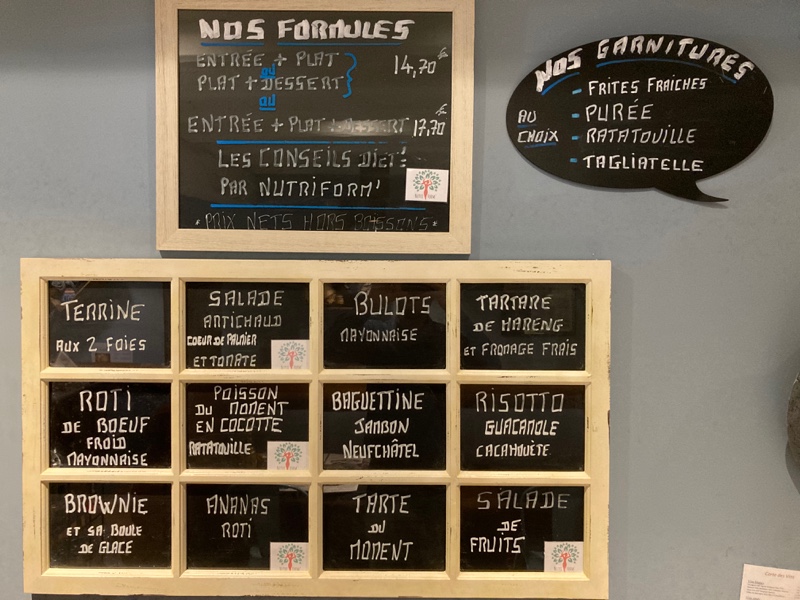 NOS FORMULES
ENTRÉE + PLAT
ou
PLAT + DESSERT
14,70€
ou
ENTRÉE + PLAT + DESSERT 17,70€
LES CONSEILS DIET!
PAR NUTRIFORM'
*PRIX NETS HORS BOISSONS*
NOS GARNITURES
AU CHOIX
- FRITES FRAICHES
- PURÉE
- RATATOUILLE
- TAGLIATELLE
TERRINE
AUX 2 FOIES
SALADE
ARTICHAUD
COEUR DE PALMIER
ET TOMATE
BULOTS
MAYONNAISE
TARTARE
DE HARENG
ET FROMAGE FRAIS
ROTI
DE BOEUF
FROID
MAYONNAISE
POISSON
DU MOMENT
EN COCOTTE
RATATOUILLE
BAGUETTINE
JAMBON
NEUFCHÂTEL
RISOTTO
GUACAMOLE
CACAHOUÈTE
BROWNIE
ET SA BOULE
DE GLACE
ANANAS
ROTI
TARTE
DU
MOMENT
SALADE
DE
FRUITS